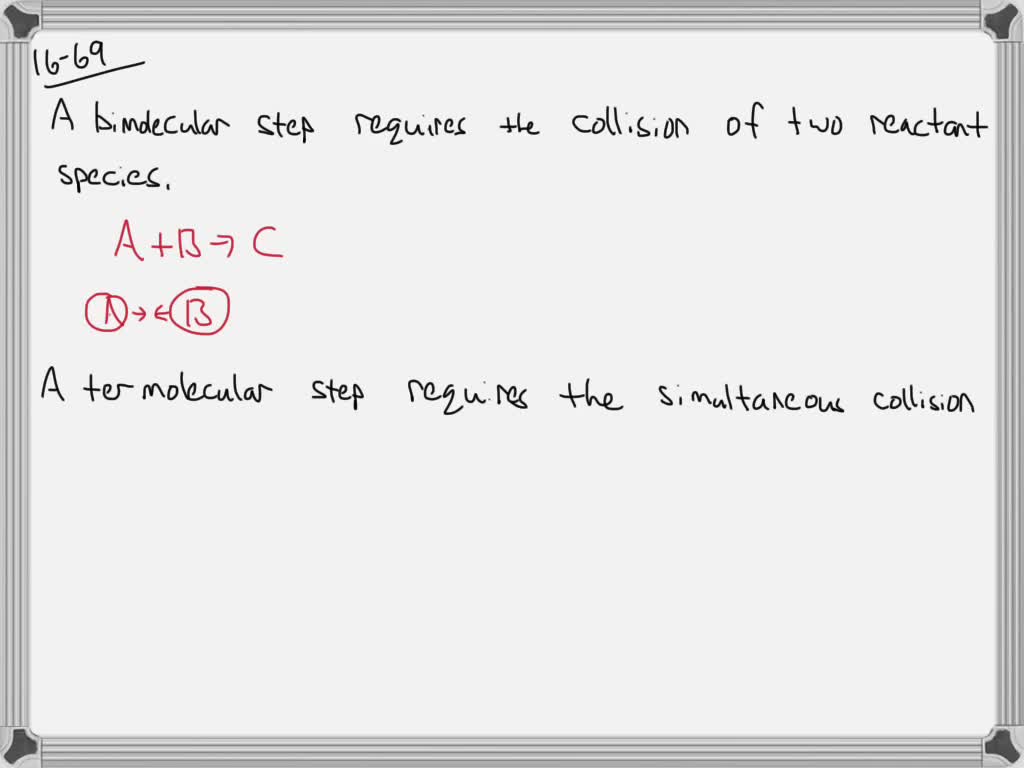 16-69
A bimolecular step requires the collision of two reactant
species.
A + B → C
A → ← B
A termolecular step requires the simultaneous collision